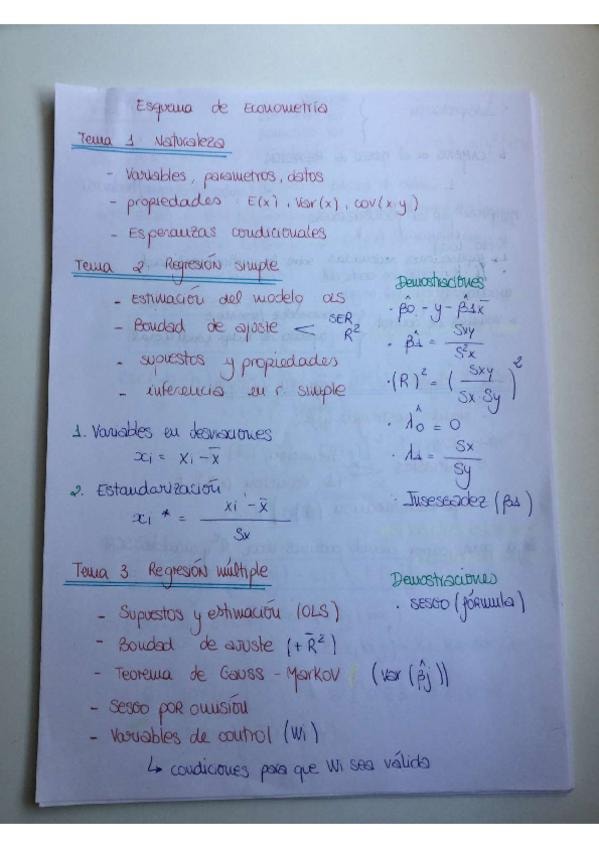 Esquema de Econometría
Tema 1 Naturaleza
- Variables, parametros, datos
- propiedades E(x), Var(x), cov(x,y)
- Esperanzas condicionales
Tema 2 Regresión simple
- Estimación del modelo OLS
- Bondad de ajuste < SER R²
- supuestos y propiedades
- inferencia en r. simple
Demostraciones
· β̂0 - y - β̂1x̄
· β̂1 = Sxy / S²x
· (R)² = (Sxy / Sx·Sy)²
· λ̂0 = 0
· λ1 = Sx / Sy
· Insesgadez (β1)
1. Variables en desviaciones
xi = Xi - x̄
2. Estandarización
xi* = xi - x̄ / Sx
Tema 3 Regresión múltiple
- Supuestos y estimación (OLS)
- Bondad de ajuste (+R̄²)
- Teorema de Gauss - Markov (Var(β̂j))
- Sesgo por omisión
- Variables de control (Wi)
↳ condiciones para que Wi sea válida
Demostraciones
· SESGO (fórmula)